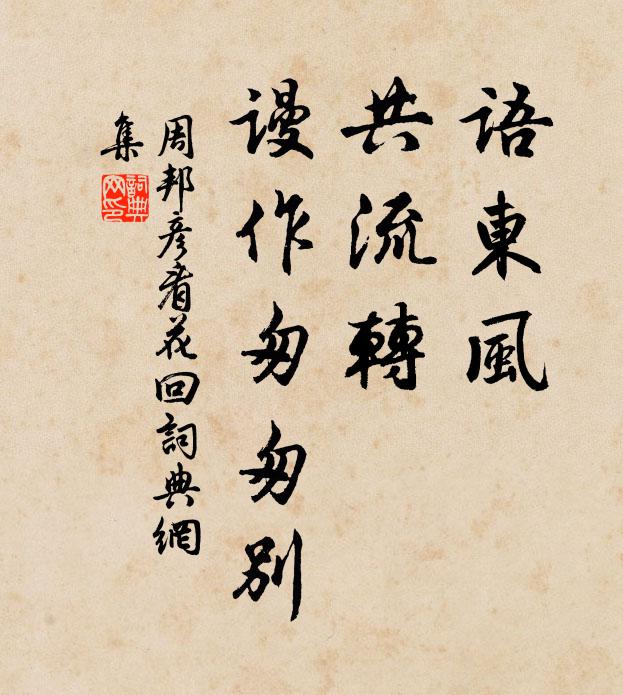 語東風
共流轉
謾作匆匆別
周邦彦看花回詞典網
集
詞典
网印